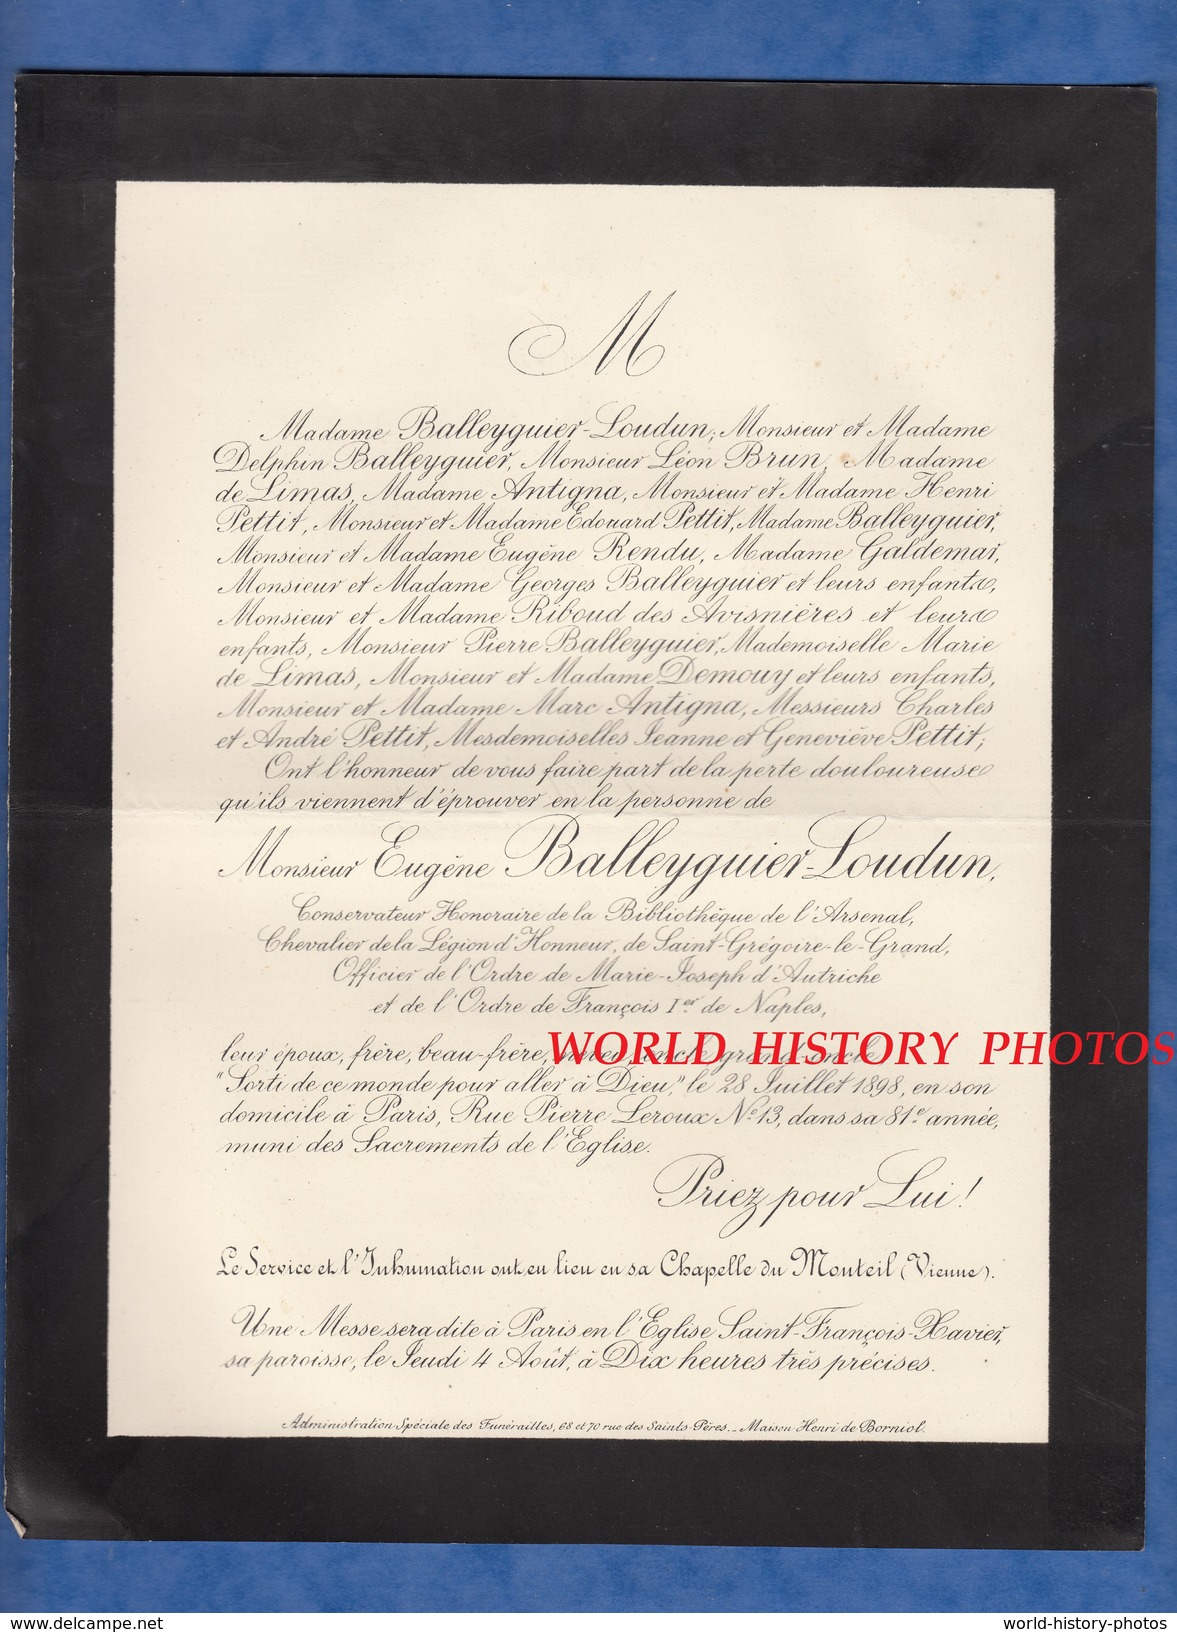 M
Madame Balleyguier-Loudun, Monsieur et Madame
Delphin Balleyguier, Monsieur Léon Brun, Madame
de Limas, Madame Antigna, Monsieur et Madame Henri
Pettit, Monsieur et Madame Edouard Pettit, Madame Balleyguier,
Monsieur et Madame Eugène Rendu, Madame Galdemar,
Monsieur et Madame Georges Balleyguier et leurs enfants,
Monsieur et Madame Riboud des Avisnières et leurs
enfants, Monsieur Pierre Balleyguier, Mademoiselle Marie
de Limas, Monsieur et Madame Demouy et leurs enfants,
Monsieur et Madame Marc Antigna, Messieurs Charles
et André Pettit, Mesdemoiselles Jeanne et Geneviève Pettit;
Ont l'honneur de vous faire part de la perte douloureuse
qu'ils viennent d'éprouver en la personne de
Monsieur Eugène Balleyguier-Loudun,
Conservateur Honoraire de la Bibliothèque de l'Arsenal,
Chevalier de la Légion d'Honneur, de Saint-Grégoire-le-Grand,
Officier de l'Ordre de Marie-Joseph d'Autriche
et de l'Ordre de François Ier de Naples,
leur époux, frère, beau-frère, oncle, grand-oncle
WORLD HISTORY PHOTOS
"Sorti de ce monde pour aller à Dieu," le 28 Juillet 1898, en son
domicile à Paris, Rue Pierre Leroux No 13, dans sa 81e année,
muni des Sacrements de l'Eglise.
Priez pour Lui!
Le Service et l'Inhumation ont eu lieu en sa Chapelle du Monteil (Vienne).
Une Messe sera dite à Paris en l'Eglise Saint-François-Xavier,
sa paroisse, le Jeudi 4 Août, à Dix heures très précises.
Administration Spéciale des Funérailles, 68 et 70 rue des Saints-Pères._Maison Henri de Borniol.
https://www.delcampe.net
world-history-photos